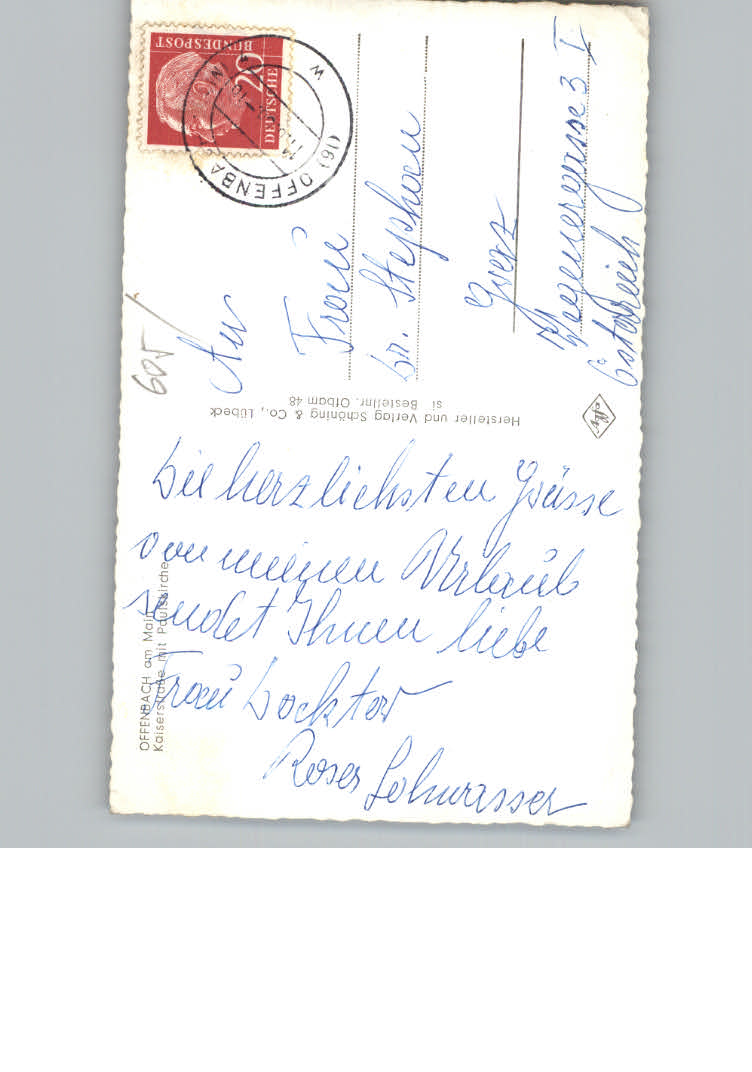 OFFENBACH am Main
Kaiserstraße mit Paulskirche
Die herzlichsten Grüsse
von meinen Urlaub
sendet Ihnen liebe
Frau Docktor
Roser Lohwasser
Hersteller und Verlag Schöning & Co., Lübeck
si Bestellnr. Ofbam 48
Agfa
605
DEUTSCHE
BUNDESPOST
20
(16) OFFENBA
An
Frau
Dr. Stephan
Graz
3 I
Österreich